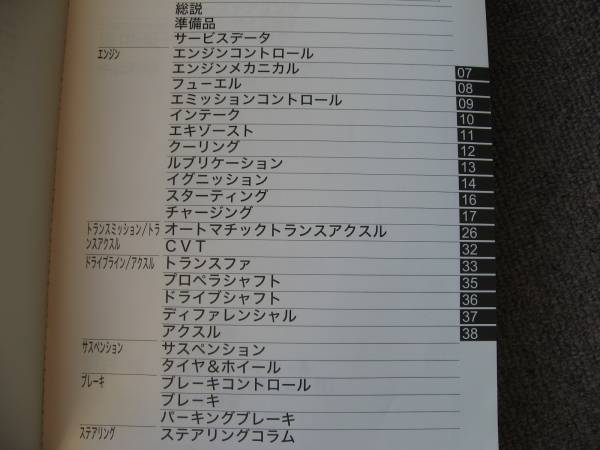 総説
準備品
サービスデータ
エンジン エンジンコントロール
エンジンメカニカル 07
フューエル 08
エミッションコントロール 09
インテーク 10
エキゾースト 11
クーリング 12
ルブリケーション 13
イグニッション 14
スターティング 16
チャージング 17
トランスミッション/トラ オートマチックトランスアクスル 26
ンスアクスル CVT 32
ドライブライン/アクスル トランスファ 33
プロペラシャフト 35
ドライブシャフト 36
ディファレンシャル 37
アクスル 38
サスペンション サスペンション
タイヤ&ホイール
ブレーキ ブレーキコントロール
ブレーキ
パーキングブレーキ
ステアリング ステアリングコラム